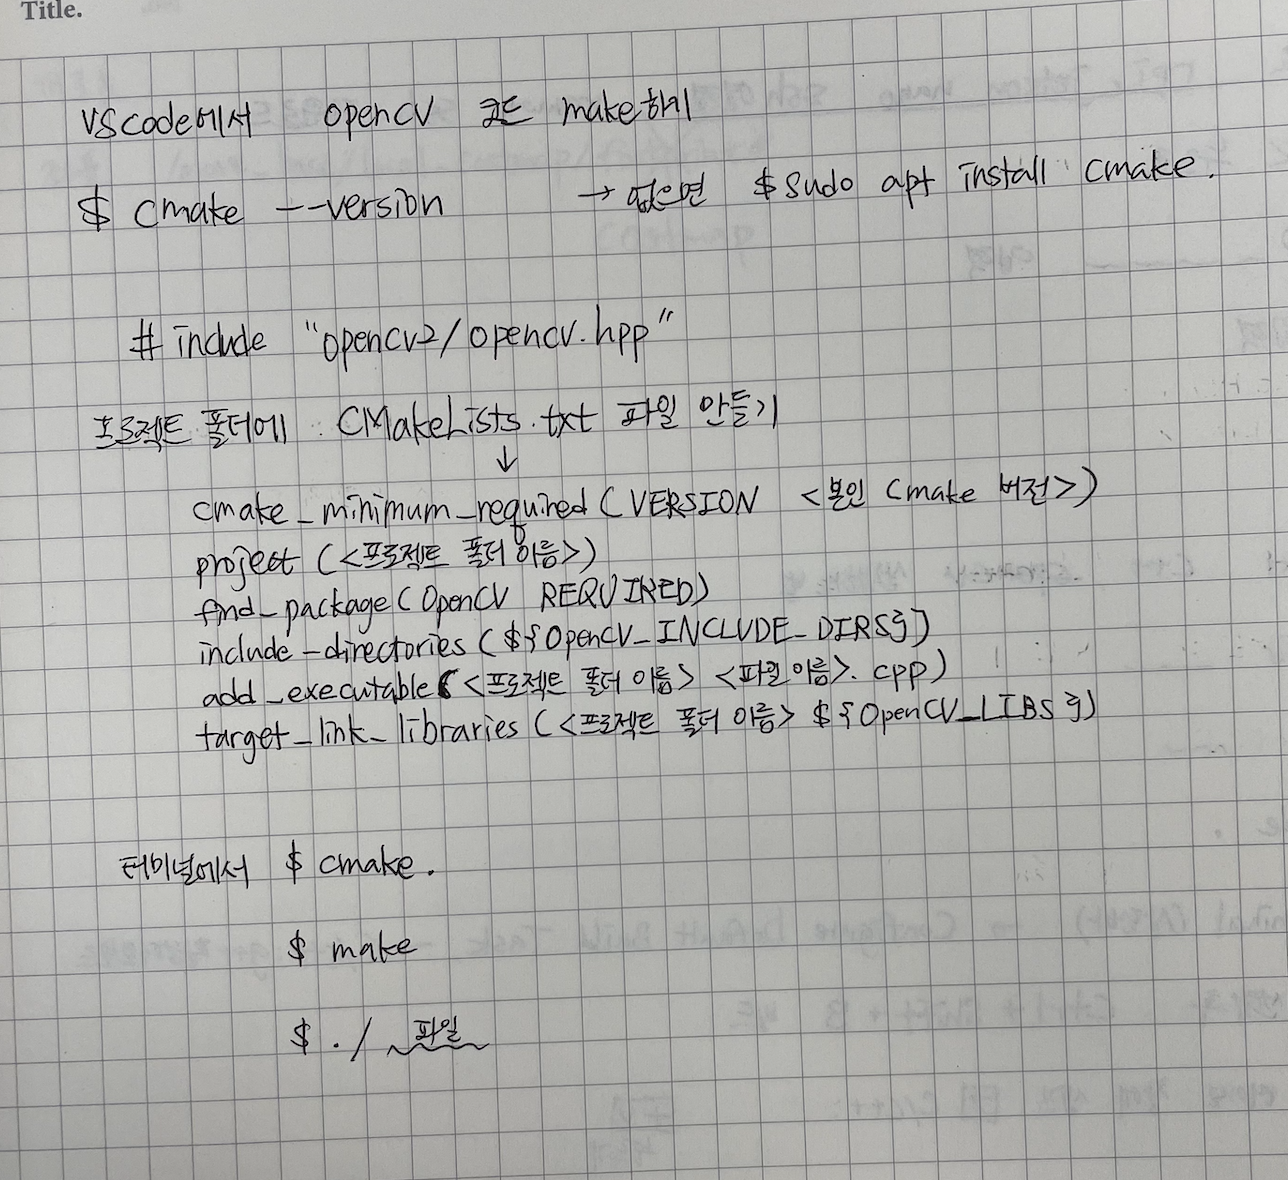 Title.
VScode에서 opencv 코드 make하기
$ cmake --version → 없으면 $ sudo apt install cmake.
# include "opencv2/opencv.hpp"
프로젝트 폴더에 CMakeLists.txt 파일 만들기
↓
cmake_minimum_required (VERSION <본인 cmake 버전>)
project (<프로젝트 폴더 이름>)
find_package (OpenCV REQUIRED)
include_directories (${OpenCV_INCLUDE_DIRS})
add_executable (<프로젝트 폴더 이름> <파일이름>.cpp)
target_link_libraries (<프로젝트 폴더 이름> ${OpenCV_LIBS})
터미널에서 $ cmake .
$ make
$ ./ 파일